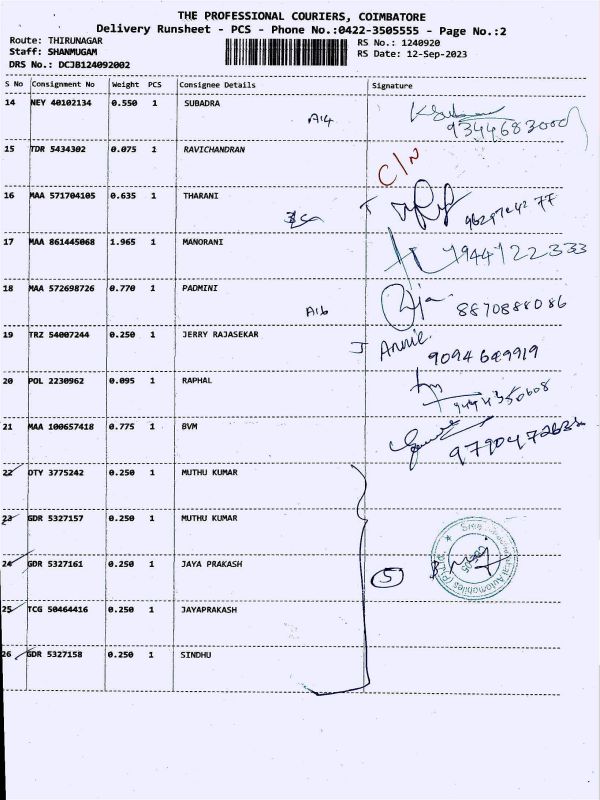 THE PROFESSIONAL COURIERS, COIMBATORE
Delivery Runsheet - PCS - Phone No.:0422-3505555 - Page No.:2
Route: THIRUNAGAR RS No.: 1240920
Staff: SHANMUGAM RS Date: 12-Sep-2023
DRS No.: DCJB124092002
S No Consignment No Weight PCS Consignee Details Signature
14 NEY 40102134 0.550 1 SUBADRA
A14
15 TDR 5434302 0.075 1 RAVICHANDRAN
C/N
16 MAA 571704105 0.635 1 THARANI
17 MAA 861445068 1.965 1 MANORANI
9944122333
18 MAA 572698726 0.770 1 PADMINI
A16 8870888086
19 TRZ 54007244 0.250 1 JERRY RAJASEKAR
J Annie.
9094649919
20 POL 2230962 0.095 1 RAPHAL
9494350608
21 MAA 100657418 0.775 1 BVM
22 DTY 3775242 0.250 1 MUTHU KUMAR
23 GDR 5327157 0.250 1 MUTHU KUMAR
24 GDR 5327161 0.250 1 JAYA PRAKASH
5
25 TCG 50464416 0.250 1 JAYAPRAKASH
26 GDR 5327158 0.250 1 SINDHU